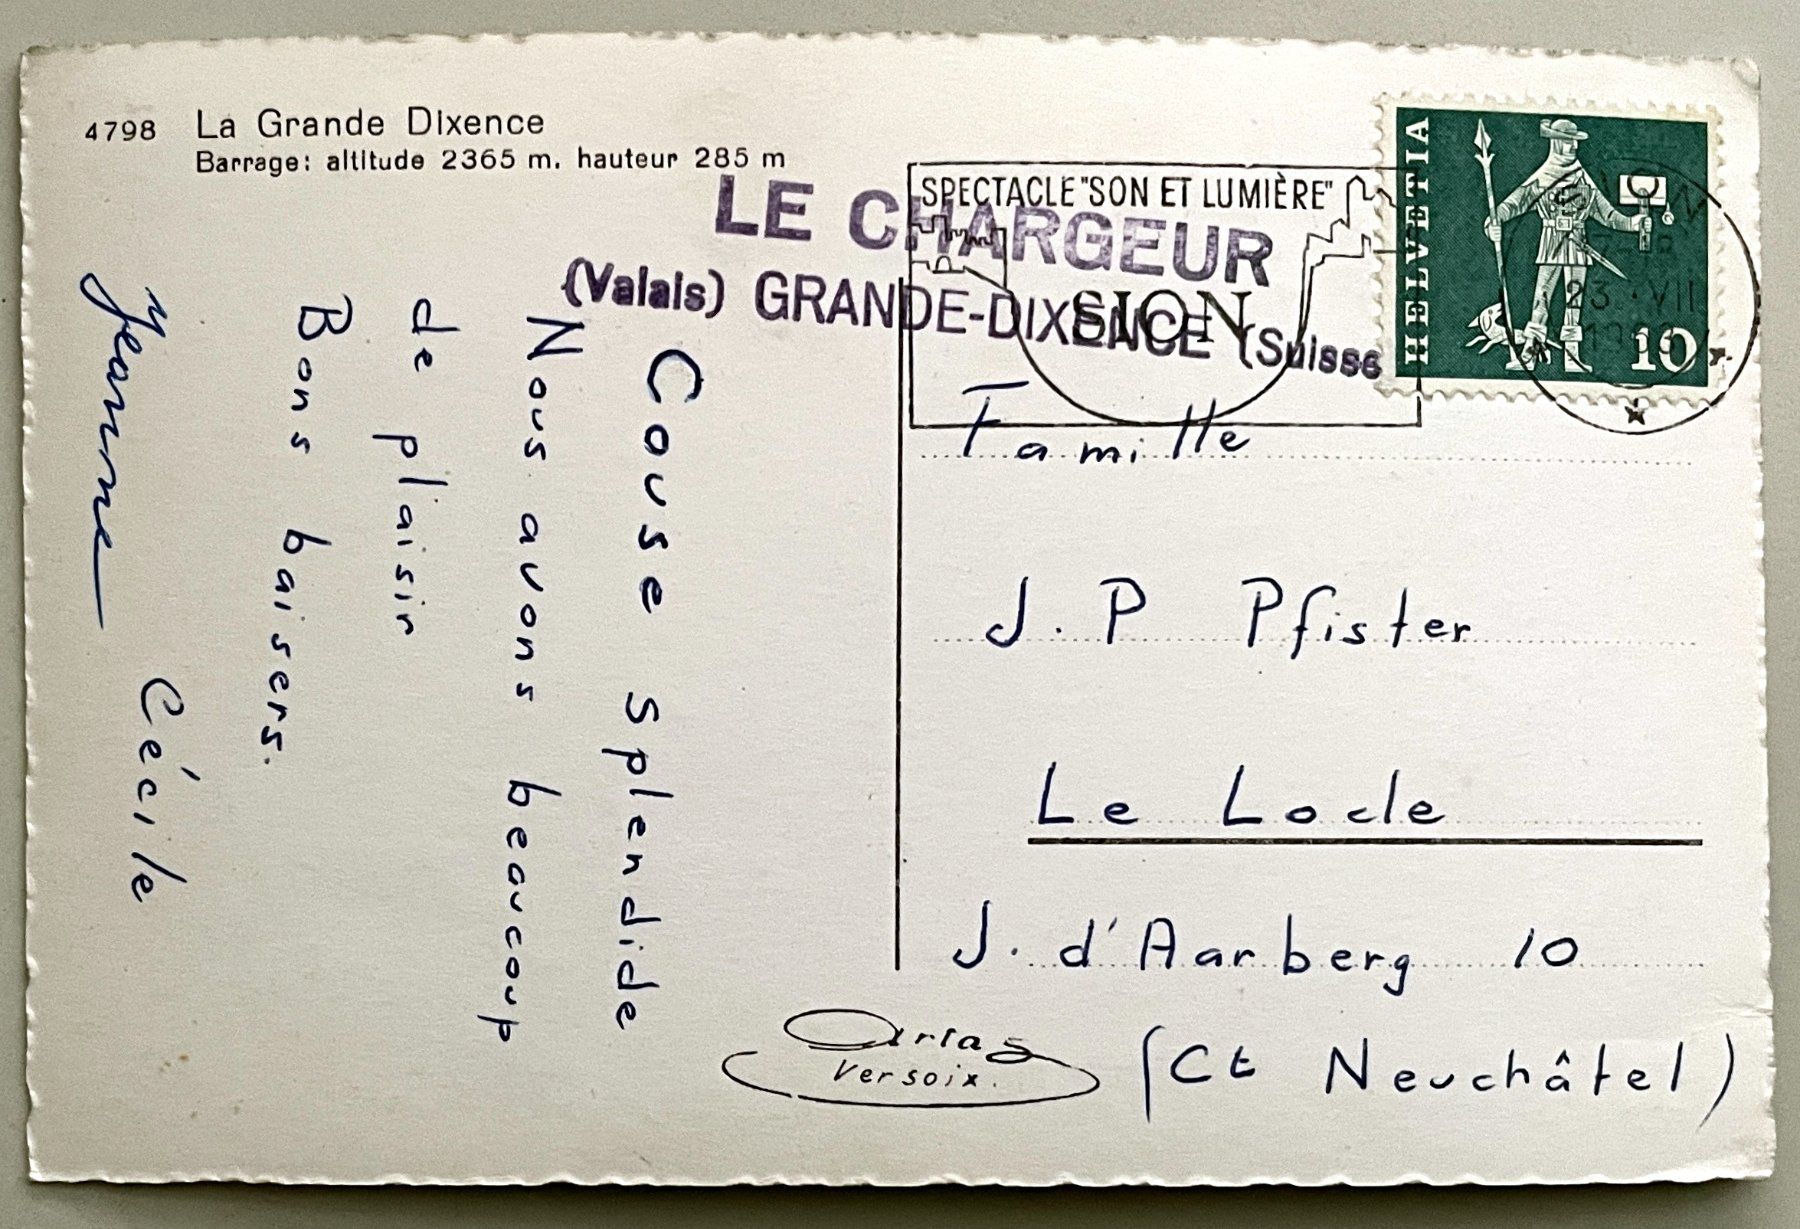 4798 La Grande Dixence
Barrage: altitude 2365 m. hauteur 285 m
LE CHARGEUR
(Valais) GRANDE-DIXENCE (Suisse
SPECTACLE "SON ET LUMIÈRE"
SION
HELVETIA
10
23 · VII
Couse splendide
Nous avons beaucoup
de plaisir
Bons baisers.
Cécile
Jeanne
Famille
J. P Pfister
Le Locle
J. d'Aarberg 10
(Ct Neuchâtel)
Artas
Versoix.